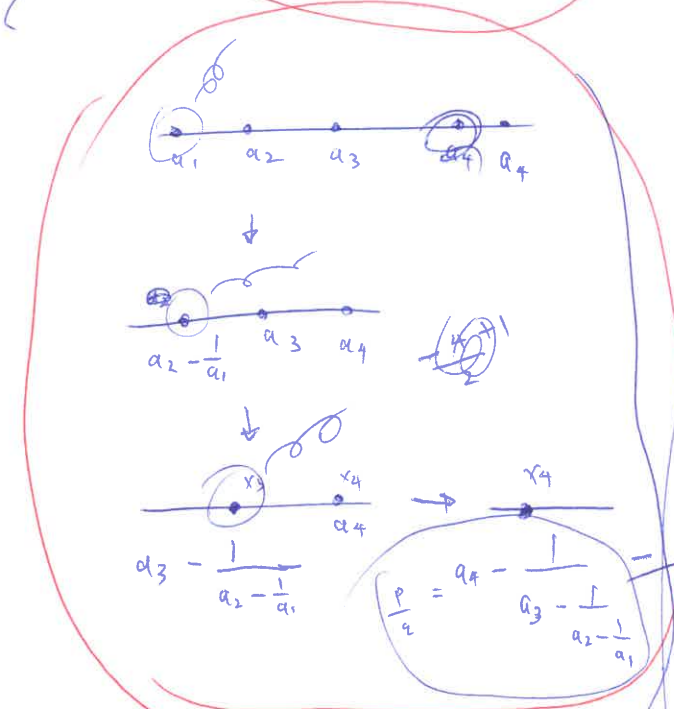 a₁ a₂ a₃ a₄
↓
a₂ - 1/a₁ a₃ a₄
↓
x₃ x₄ → x₄
a₄
a₃ - 1/(a₂ - 1/a₁)
p/q = a₄ - 1/(a₃ - 1/(a₂ - 1/a₁))